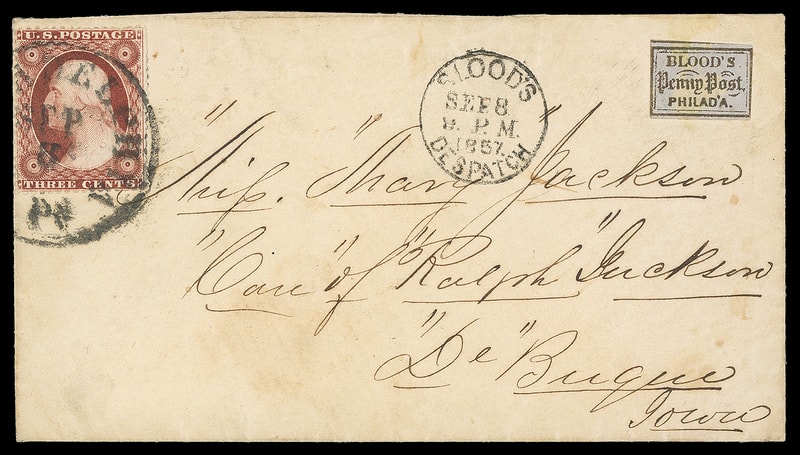 U.S. POSTAGE
THREE CENTS
SEP
PA
BLOOD'S
SEP 8
P.M.
1857
DESPATCH
BLOOD'S
Penny Post.
PHILAD'A.
Miss. Mary Jackson
"Care" of "Ralph" Jackson
"De" Buque
Iowa